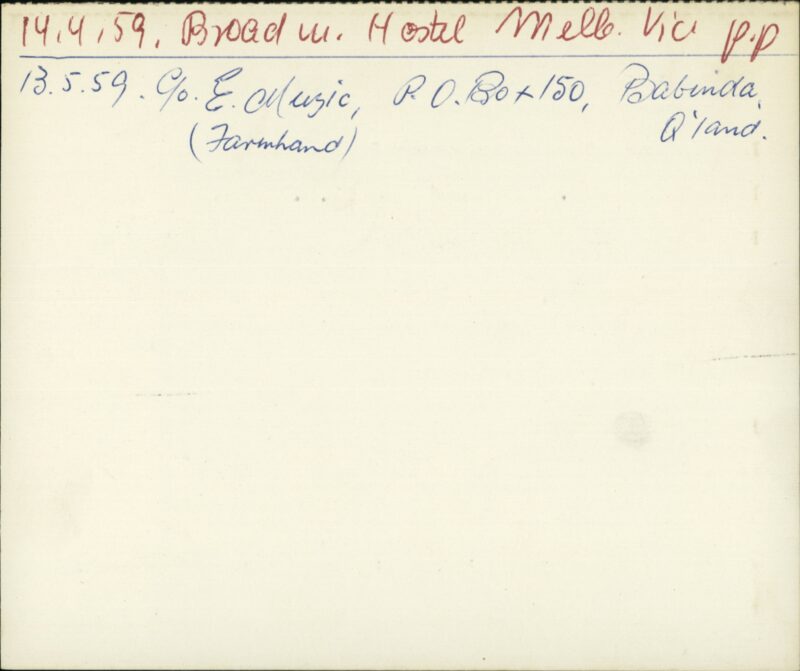 14.4.59. Broadm. Hostel Melb. Vic p.p
13.5.59. C/o. E. Muzic, P.O. Box 150, Babinda,
(Farmhand) Q'land.